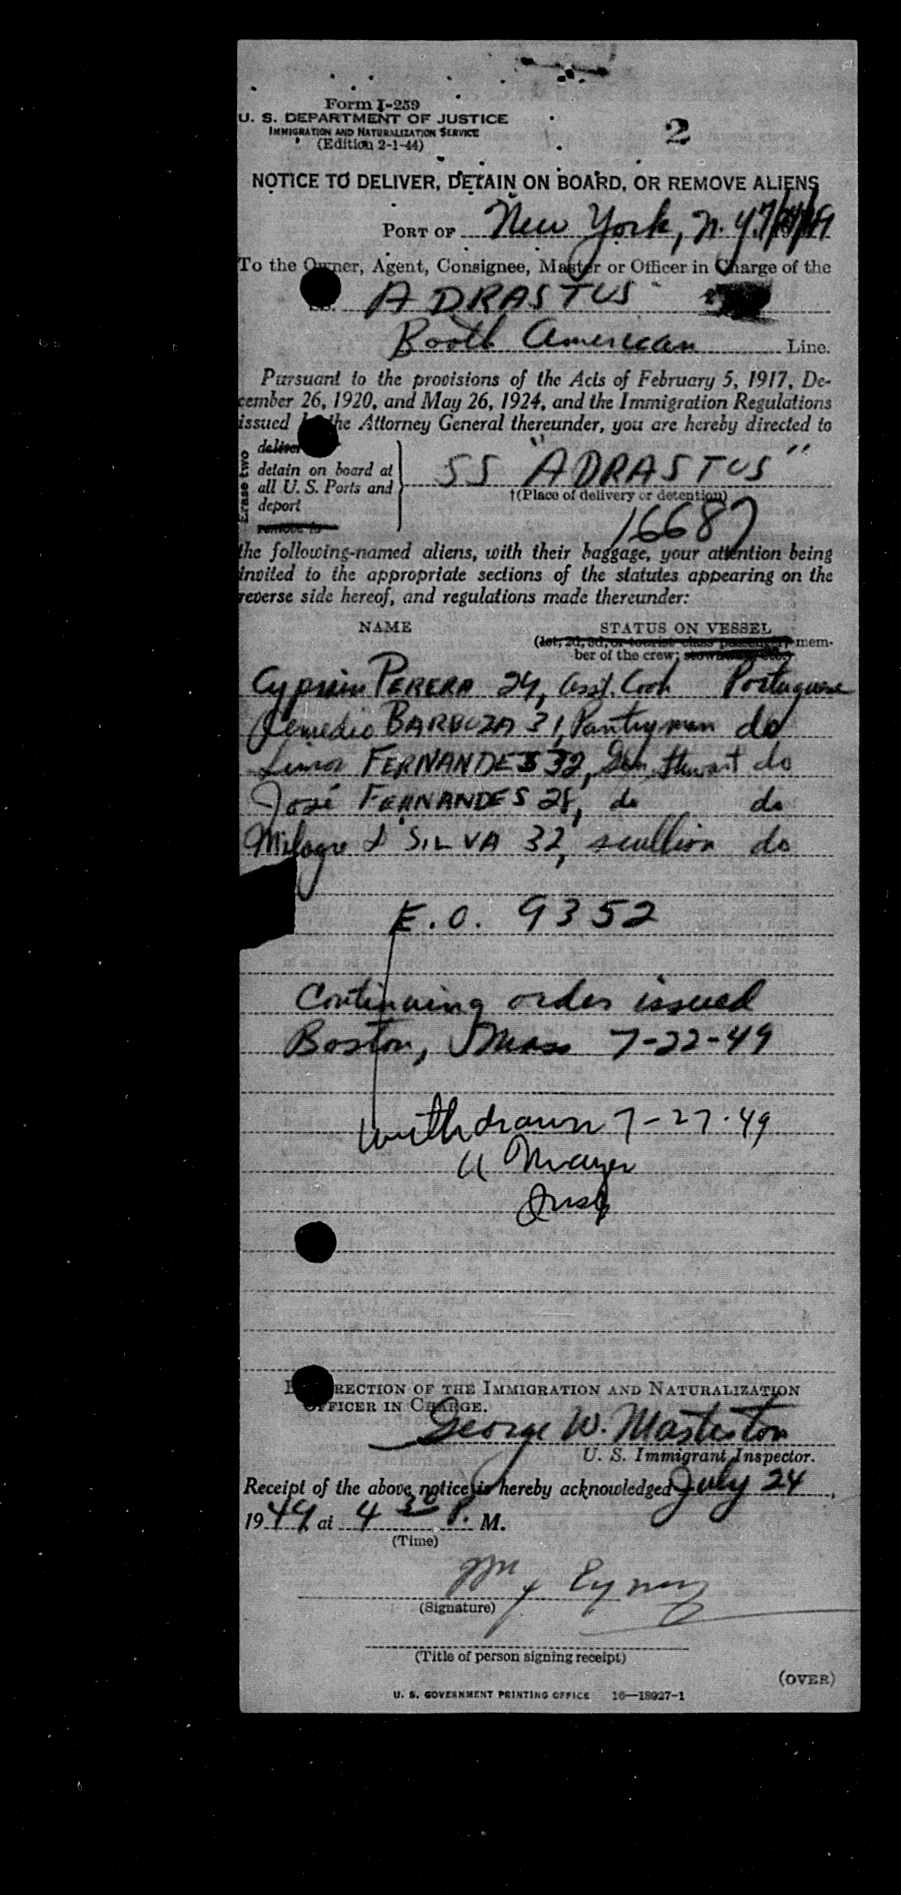 Form I-259
U. S. DEPARTMENT OF JUSTICE
IMMIGRATION AND NATURALIZATION SERVICE
(Edition 2-1-44)
2
NOTICE TO DELIVER, DETAIN ON BOARD, OR REMOVE ALIENS
PORT OF New York, N.Y.
To the Owner, Agent, Consignee, Master or Officer in Charge of the
SS. ADRASTUS
Booth American Line.
Pursuant to the provisions of the Acts of February 5, 1917, De-
cember 26, 1920, and May 26, 1924, and the Immigration Regulations
issued by the Attorney General thereunder, you are hereby directed to
Erase two
deliver
detain on board at
all U. S. Ports and
deport
remove to
SS "ADRASTUS"
†(Place of delivery or detention)
16687
the following-named aliens, with their baggage, your attention being
invited to the appropriate sections of the statutes appearing on the
reverse side hereof, and regulations made thereunder:
NAME STATUS ON VESSEL
(1st, 2d, 3d, or tourist class passenger; mem-
ber of the crew; stowaway, etc.)
PERERA 24, Asst. Cook Portuguese
BARBOZA 31, Pantryman do
FERNANDES 32, Gen. Stewart do
José FERNANDES 28, do do
Milagre D'SILVA 32, scullion do
E.O. 9352
Continuing order issued
Boston, Mass 7-22-49
withdrawn 7-27-49
Insp
BY DIRECTION OF THE IMMIGRATION AND NATURALIZATION
OFFICER IN CHARGE.
George W. Masterton
U. S. Immigrant Inspector.
Receipt of the above notice is hereby acknowledged July 24,
1949, at 4 30 P. M.
(Time)
(Signature)
(Title of person signing receipt)
(OVER)
U. S. GOVERNMENT PRINTING OFFICE 16—18927-1